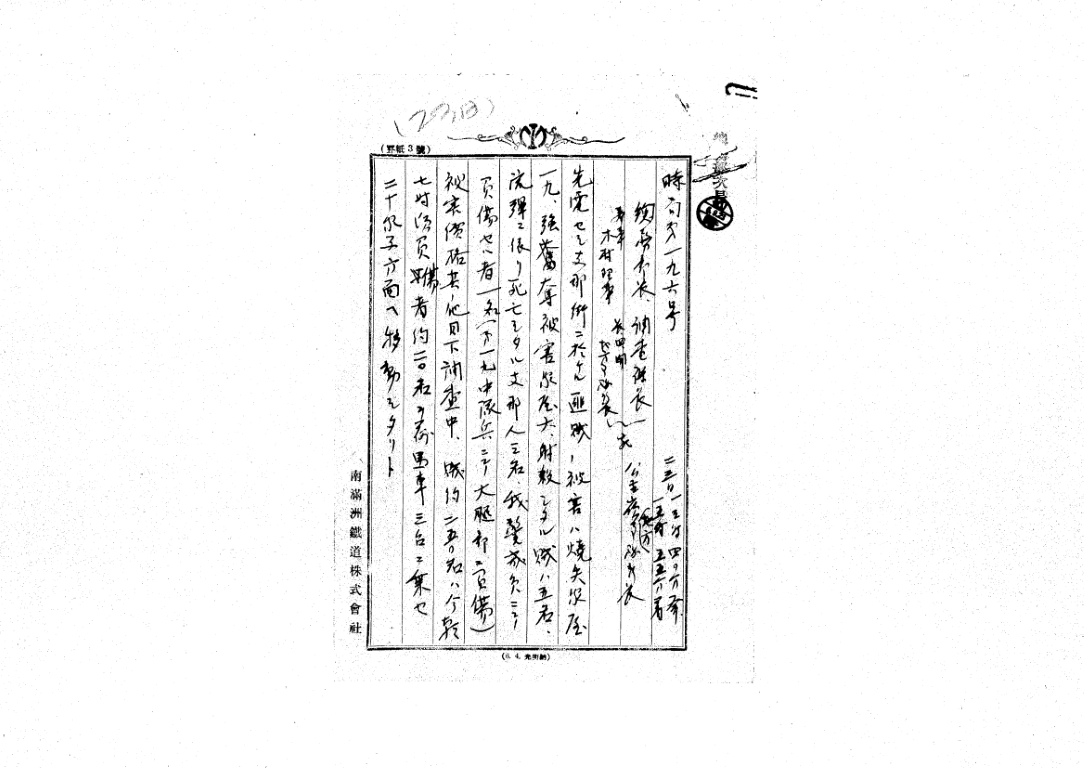 (22,日)
(罫紙3號)
時局第一九六号
二三日一三時四〇分発
一五時五五分着
総務部長、調査課長
木村理事
地方部長
公主嶺地方事務所長
先電セシ支那街ニ於ケル匪賊ノ被害ハ焼失家屋
一九、強奪被害家屋六、射殺シタル賊ハ五名、
流弾ニ依リ死亡シタル支那人三名、我警戒員ニシテ
負傷セル者一名(第一九中隊兵ニシテ大腿部ニ負傷)
被害価格其ノ他目下調査中、賊約二五〇名ハ今朝
七時頃負傷者約二〇名ヲ荷馬車三台ニ乗セ
二十家子方面ヘ移動シタリト
南滿洲鐵道株式會社